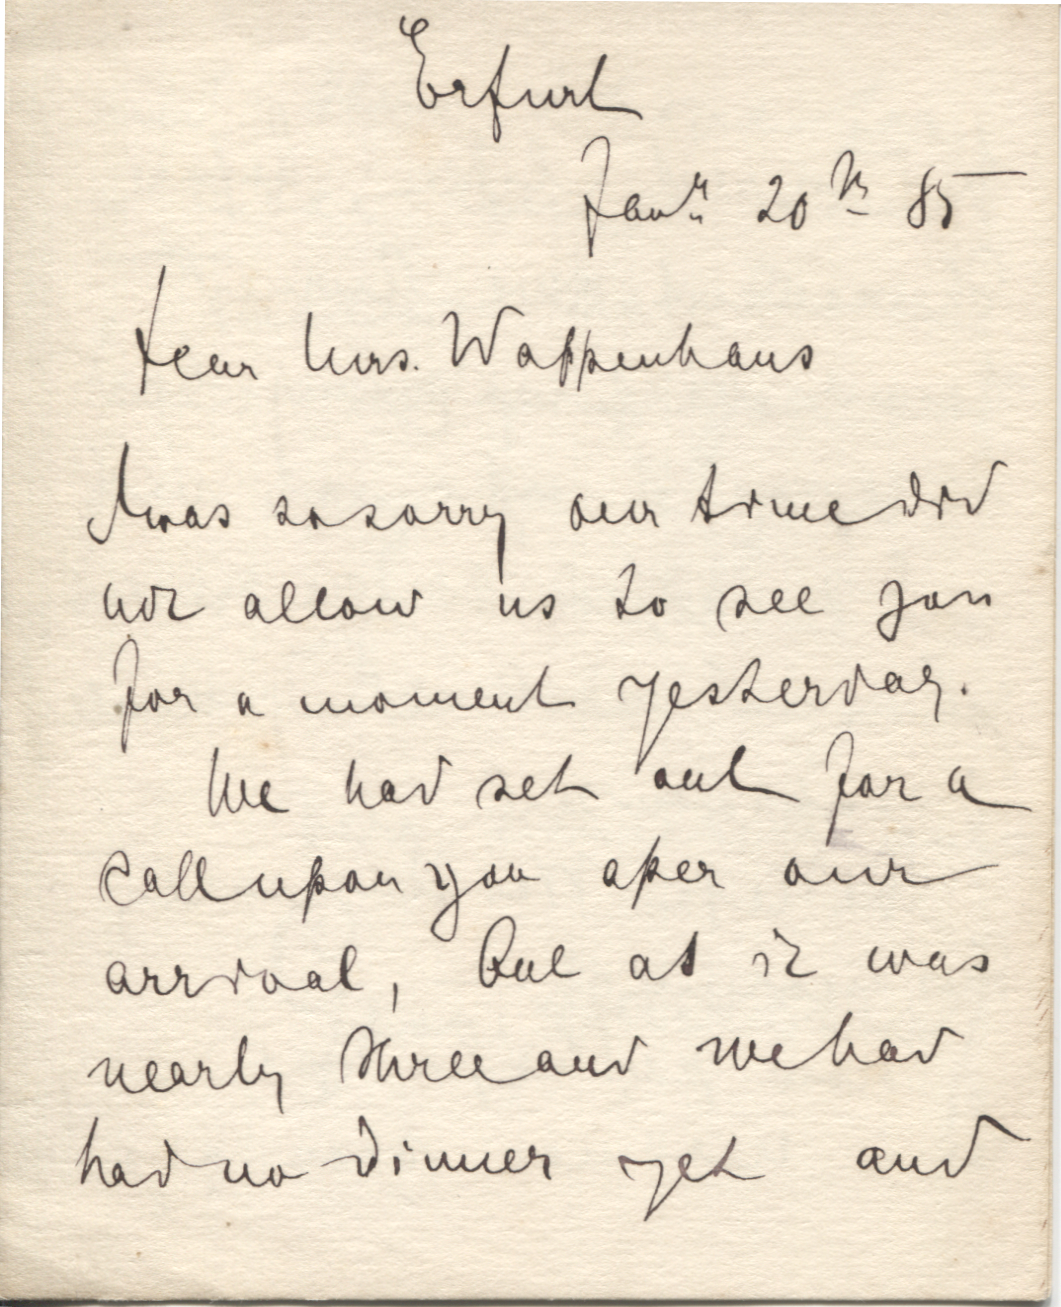 Erfurt
Jan<sup>r</sup> 20<sup>th</sup> 85
Dear Mrs. Wappenhans
I was so sorry our time did
not allow us to see you
for a moment yesterday.
We had set out for a
call upon you after our
arrival, but as it was
nearly three and we had
had no dinner yet and